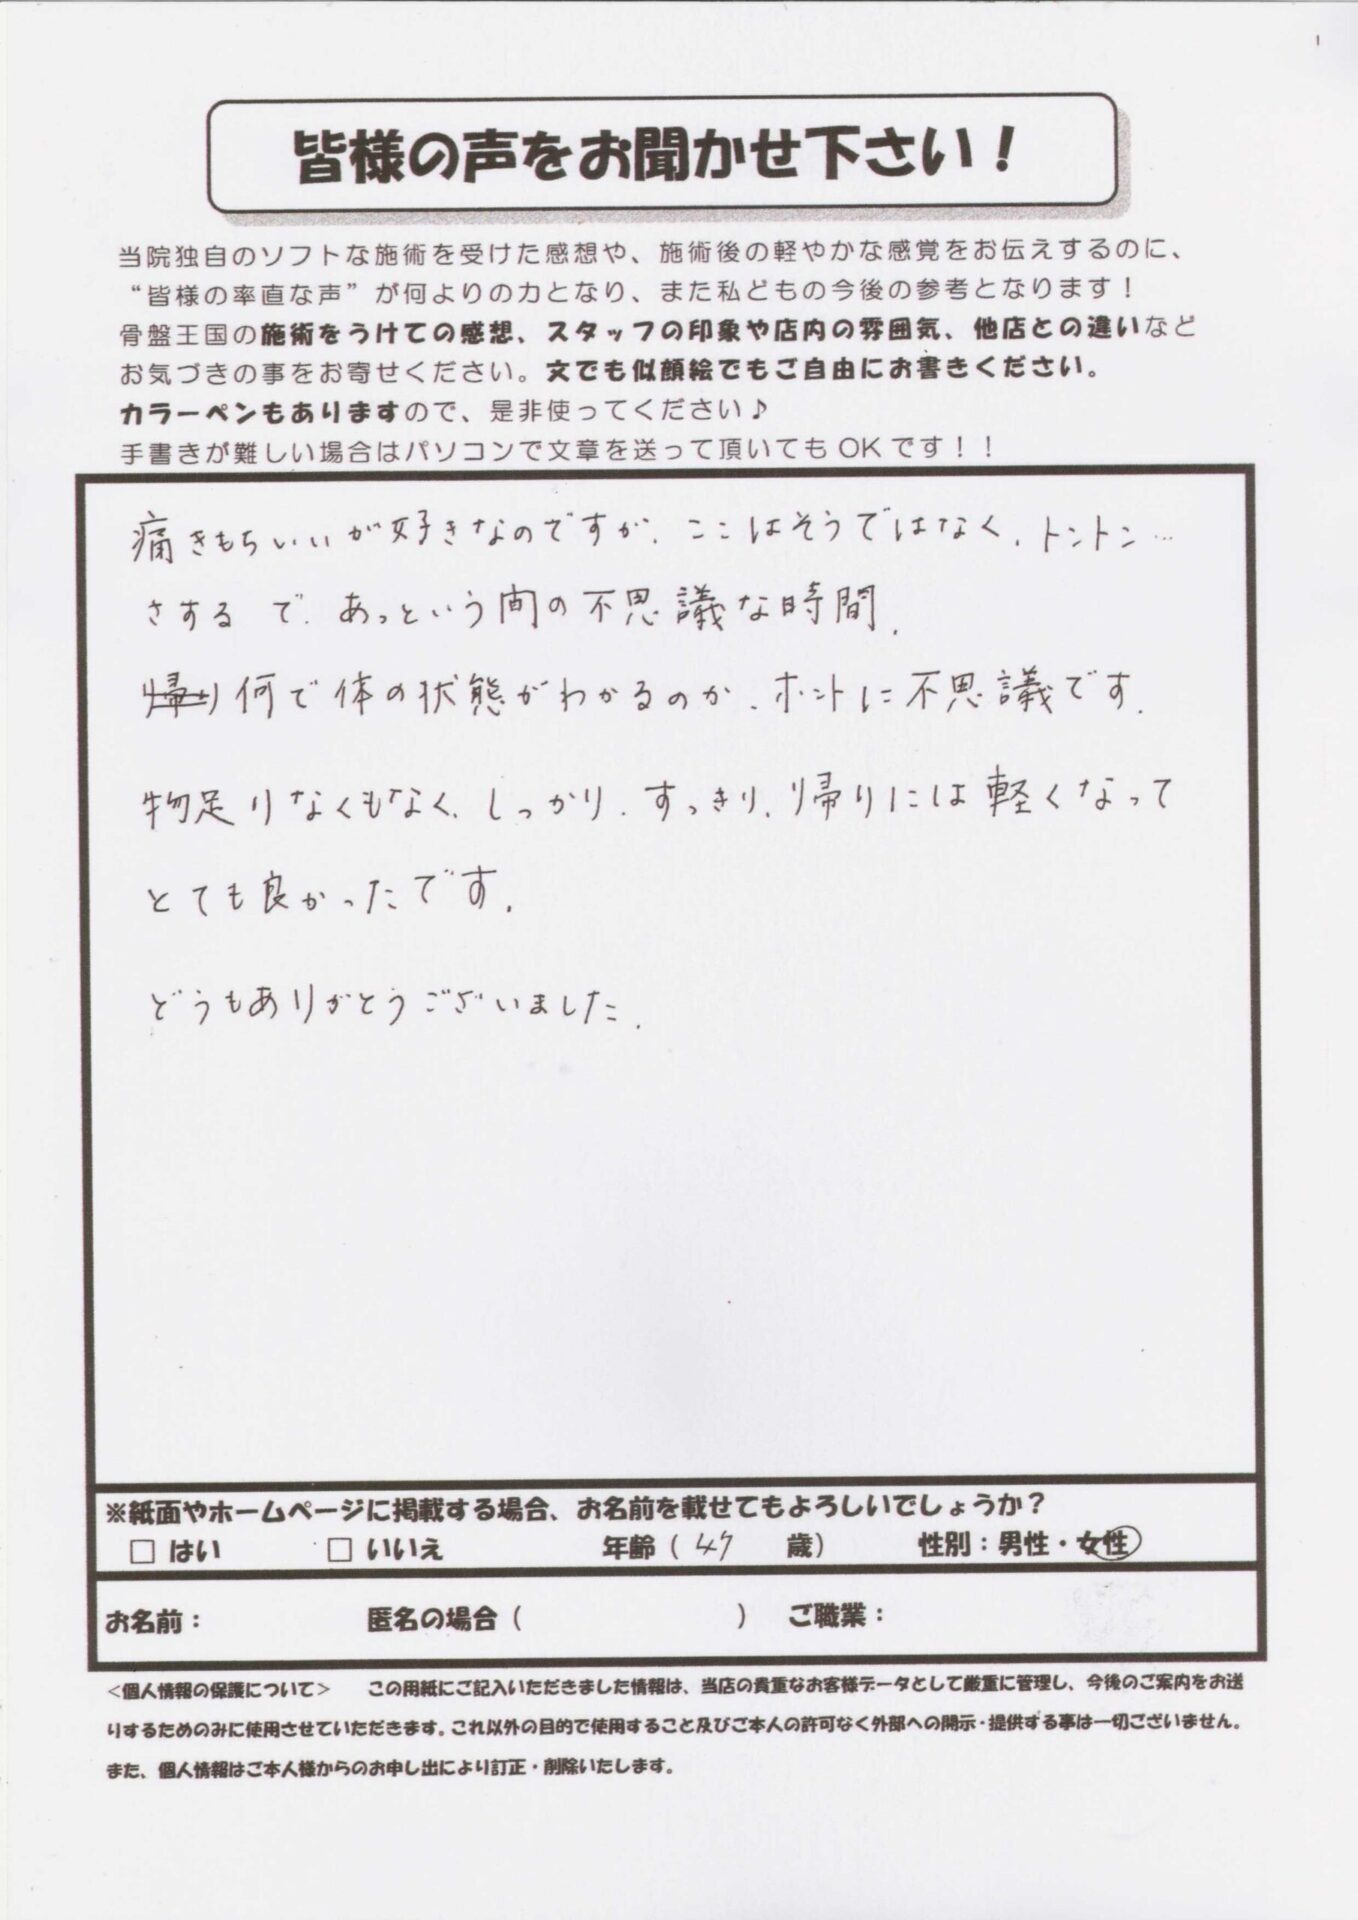 皆様の声をお聞かせ下さい！
当院独自のソフトな施術を受けた感想や、施術後の軽やかな感覚をお伝えするのに、
“皆様の率直な声”が何よりの力となり、また私どもの今後の参考となります！
骨盤王国の施術をうけての感想、スタッフの印象や店内の雰囲気、他店との違いなど
お気づきの事をお寄せください。文でも似顔絵でもご自由にお書きください。
カラーペンもありますので、是非使ってください♪
手書きが難しい場合はパソコンで文章を送って頂いてもOKです！！
痛きもちいいが好きなのですが、ここはそうではなく、トントン…
さするで、あっという間の不思議な時間。
帰り何で体の状態がわかるのか、ホントに不思議です。
物足りなくもなく、しっかり、すっきり、帰りには軽くなって
とても良かったです。
どうもありがとうございました。
※紙面やホームページに掲載する場合、お名前を載せてもよろしいでしょうか？
□ はい □ いいえ 年齢（ 47 歳） 性別：男性・女性
お名前： 匿名の場合（ ） ご職業：
＜個人情報の保護について＞ この用紙にご記入いただきました情報は、当店の貴重なお客様データとして厳重に管理し、今後のご案内をお送
りするためのみに使用させていただきます。これ以外の目的で使用すること及びご本人の許可なく外部への開示・提供する事は一切ございません。
また、個人情報はご本人様からのお申し出により訂正・削除いたします。